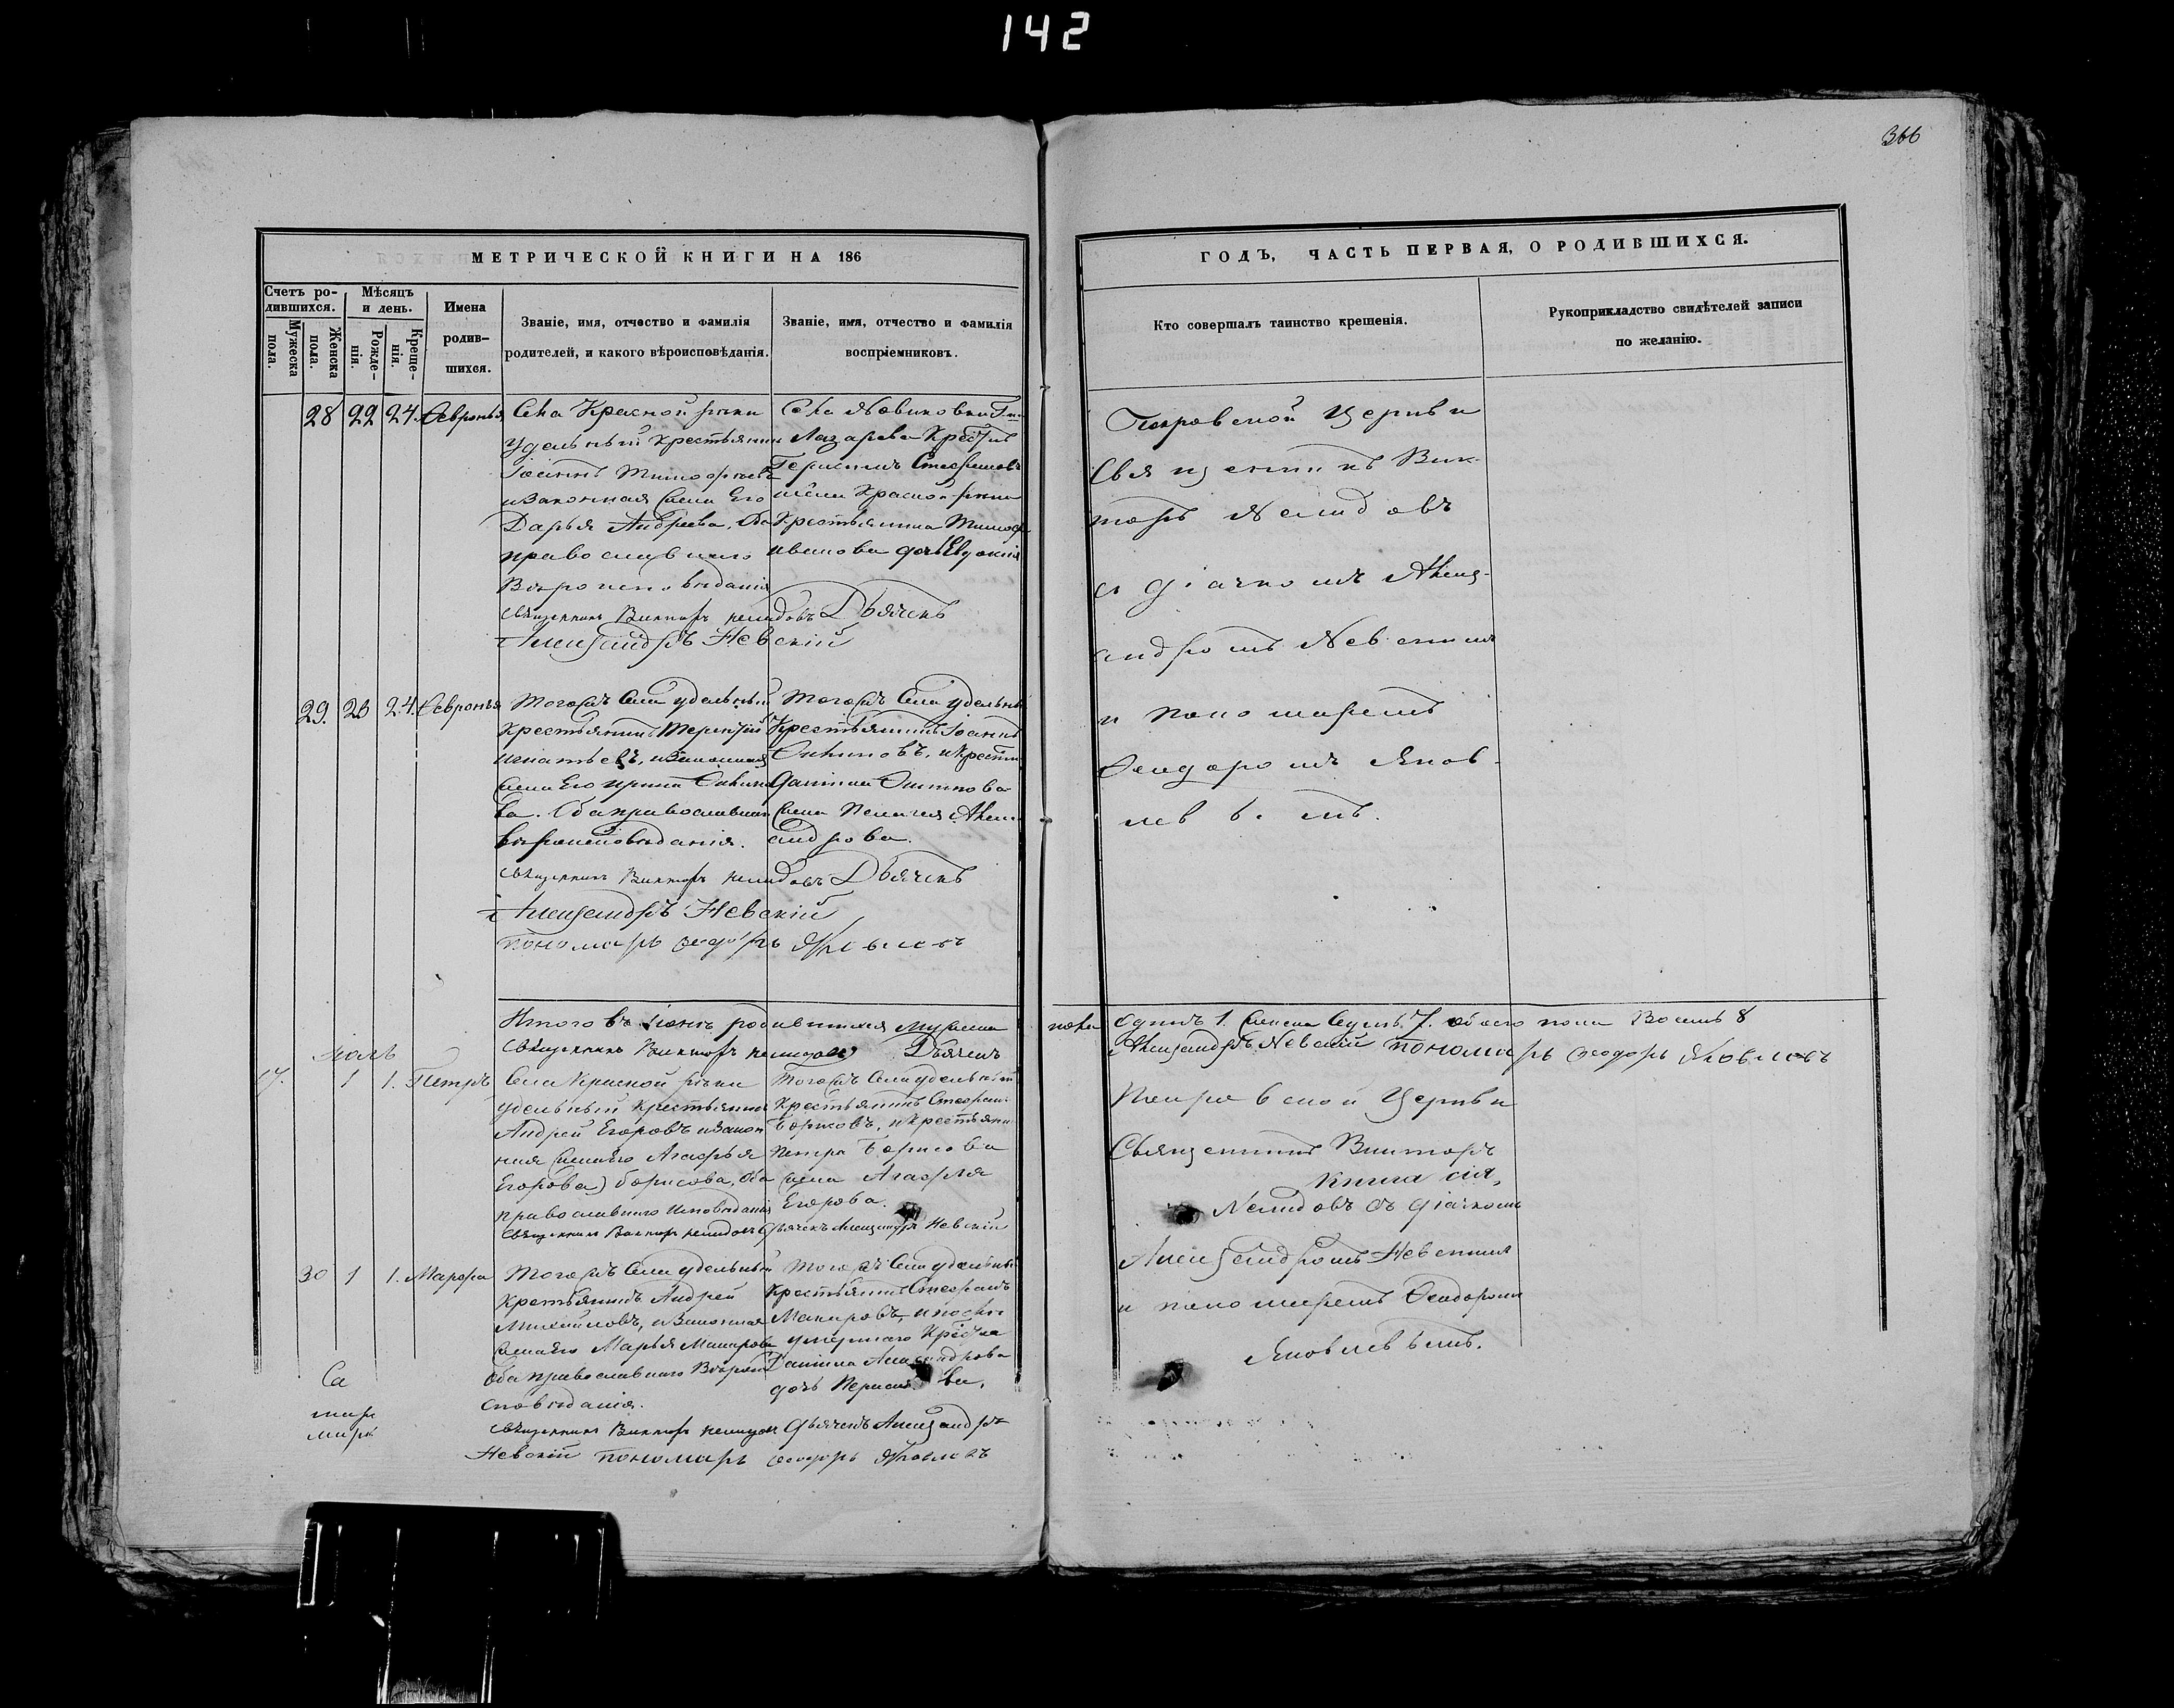 142
366
МЕТРИЧЕСКОЙ КНИГИ НА 186
Счетъ ро-
дившихся.
Мужеска
пола.
Женска
пола.
Мѣсяцъ
и день.
Рожде-
нія.
Креще-
нія.
Имена
родив-
шихся.
Званіе, имя, отчество и фамилія
родителей, и какого вѣроисповѣданія.
Званіе, имя, отчество и фамилія
воспріемниковъ.
28 22 24. Февронья
Села Красной рѣки
удельный крестьянин
Іоаннъ Тимофѣевъ
и законная жена его
Дарья Андреева, оба
православнаго
вѣроисповѣданія
Села Новиковки
Лазарева
Герасимъ Стефановъ
села Красной рѣки
крестьянина
иванова дочь Евдокия
священникъ Викторъ немидовъ Дьячекъ
Александръ Невскій
29. 23 24. Февронья
Тогожъ села удельный
крестьянинъ Терентій
игнатьевъ, и законная
жена его ирина
ва. Оба православнаго
вѣроисповѣданія.
Тогожъ села удельный
крестьянинъ Іоаннъ
жена Пелагея Алекс-
андрова.
священникъ Викторъ немидовъ Дьячекъ
Александръ Невскій
пономарь Феодоръ Яковлевъ
Итого въ Іюнѣ родившихся мужеска
священникъ Викторъ немидовъ Дьячекъ
Іюль
17. 1 1. Петръ
Села Красной рѣки
удельный крестьянинъ
Андрей Егоровъ и закон
ная жена его Агафья
Егорова) борисова, оба
православнаго исповѣданія
Тогожъ села удельный
крестьянинъ Стефанъ
Борисовъ, и крестьяни
Петра Борисова
жена Агафья
Егорова.
священникъ Викторъ немидовъ дьячекъ Александръ Невскій
30 1 1. Марфа
Тогожъ села удельный
крестьянинъ Андрей
Михайловъ, и законная
жена его Марья Макарова
оба православнаго вѣрои
сповѣданія.
Тогожъ села удельный
крестьянинъ Стефанъ
Макаровъ, и
умершаго
Данила Александрова
дочь
священникъ Викторъ немидовъ дьячекъ Александръ
Невскій пономарь Феодоръ Яковлевъ
Са
мара
ГОДЪ, ЧАСТЬ ПЕРВАЯ, О РОДИВШИХСЯ.
Кто совершалъ таинство крещенія.
Рукоприкладство свидѣтелей записи
по желанію.
Покровской Церкви
Священникъ Вик-
торъ Немидовъ
съ діачкомъ Алекс-
андромъ Невскимъ
и пономаремъ
Феодоромъ Яков-
левымъ.
пола одинъ 1. женска седмь. 7. обоего пола Восемь 8
Александръ Невскій пономарь Феодоръ Яковлевъ
Покровской Церкви
Священникъ Викторъ
книга сія,
Немидовъ съ діачкомъ
Александромъ Невскимъ
и пономаремъ Феодоромъ
Яковлевымъ.